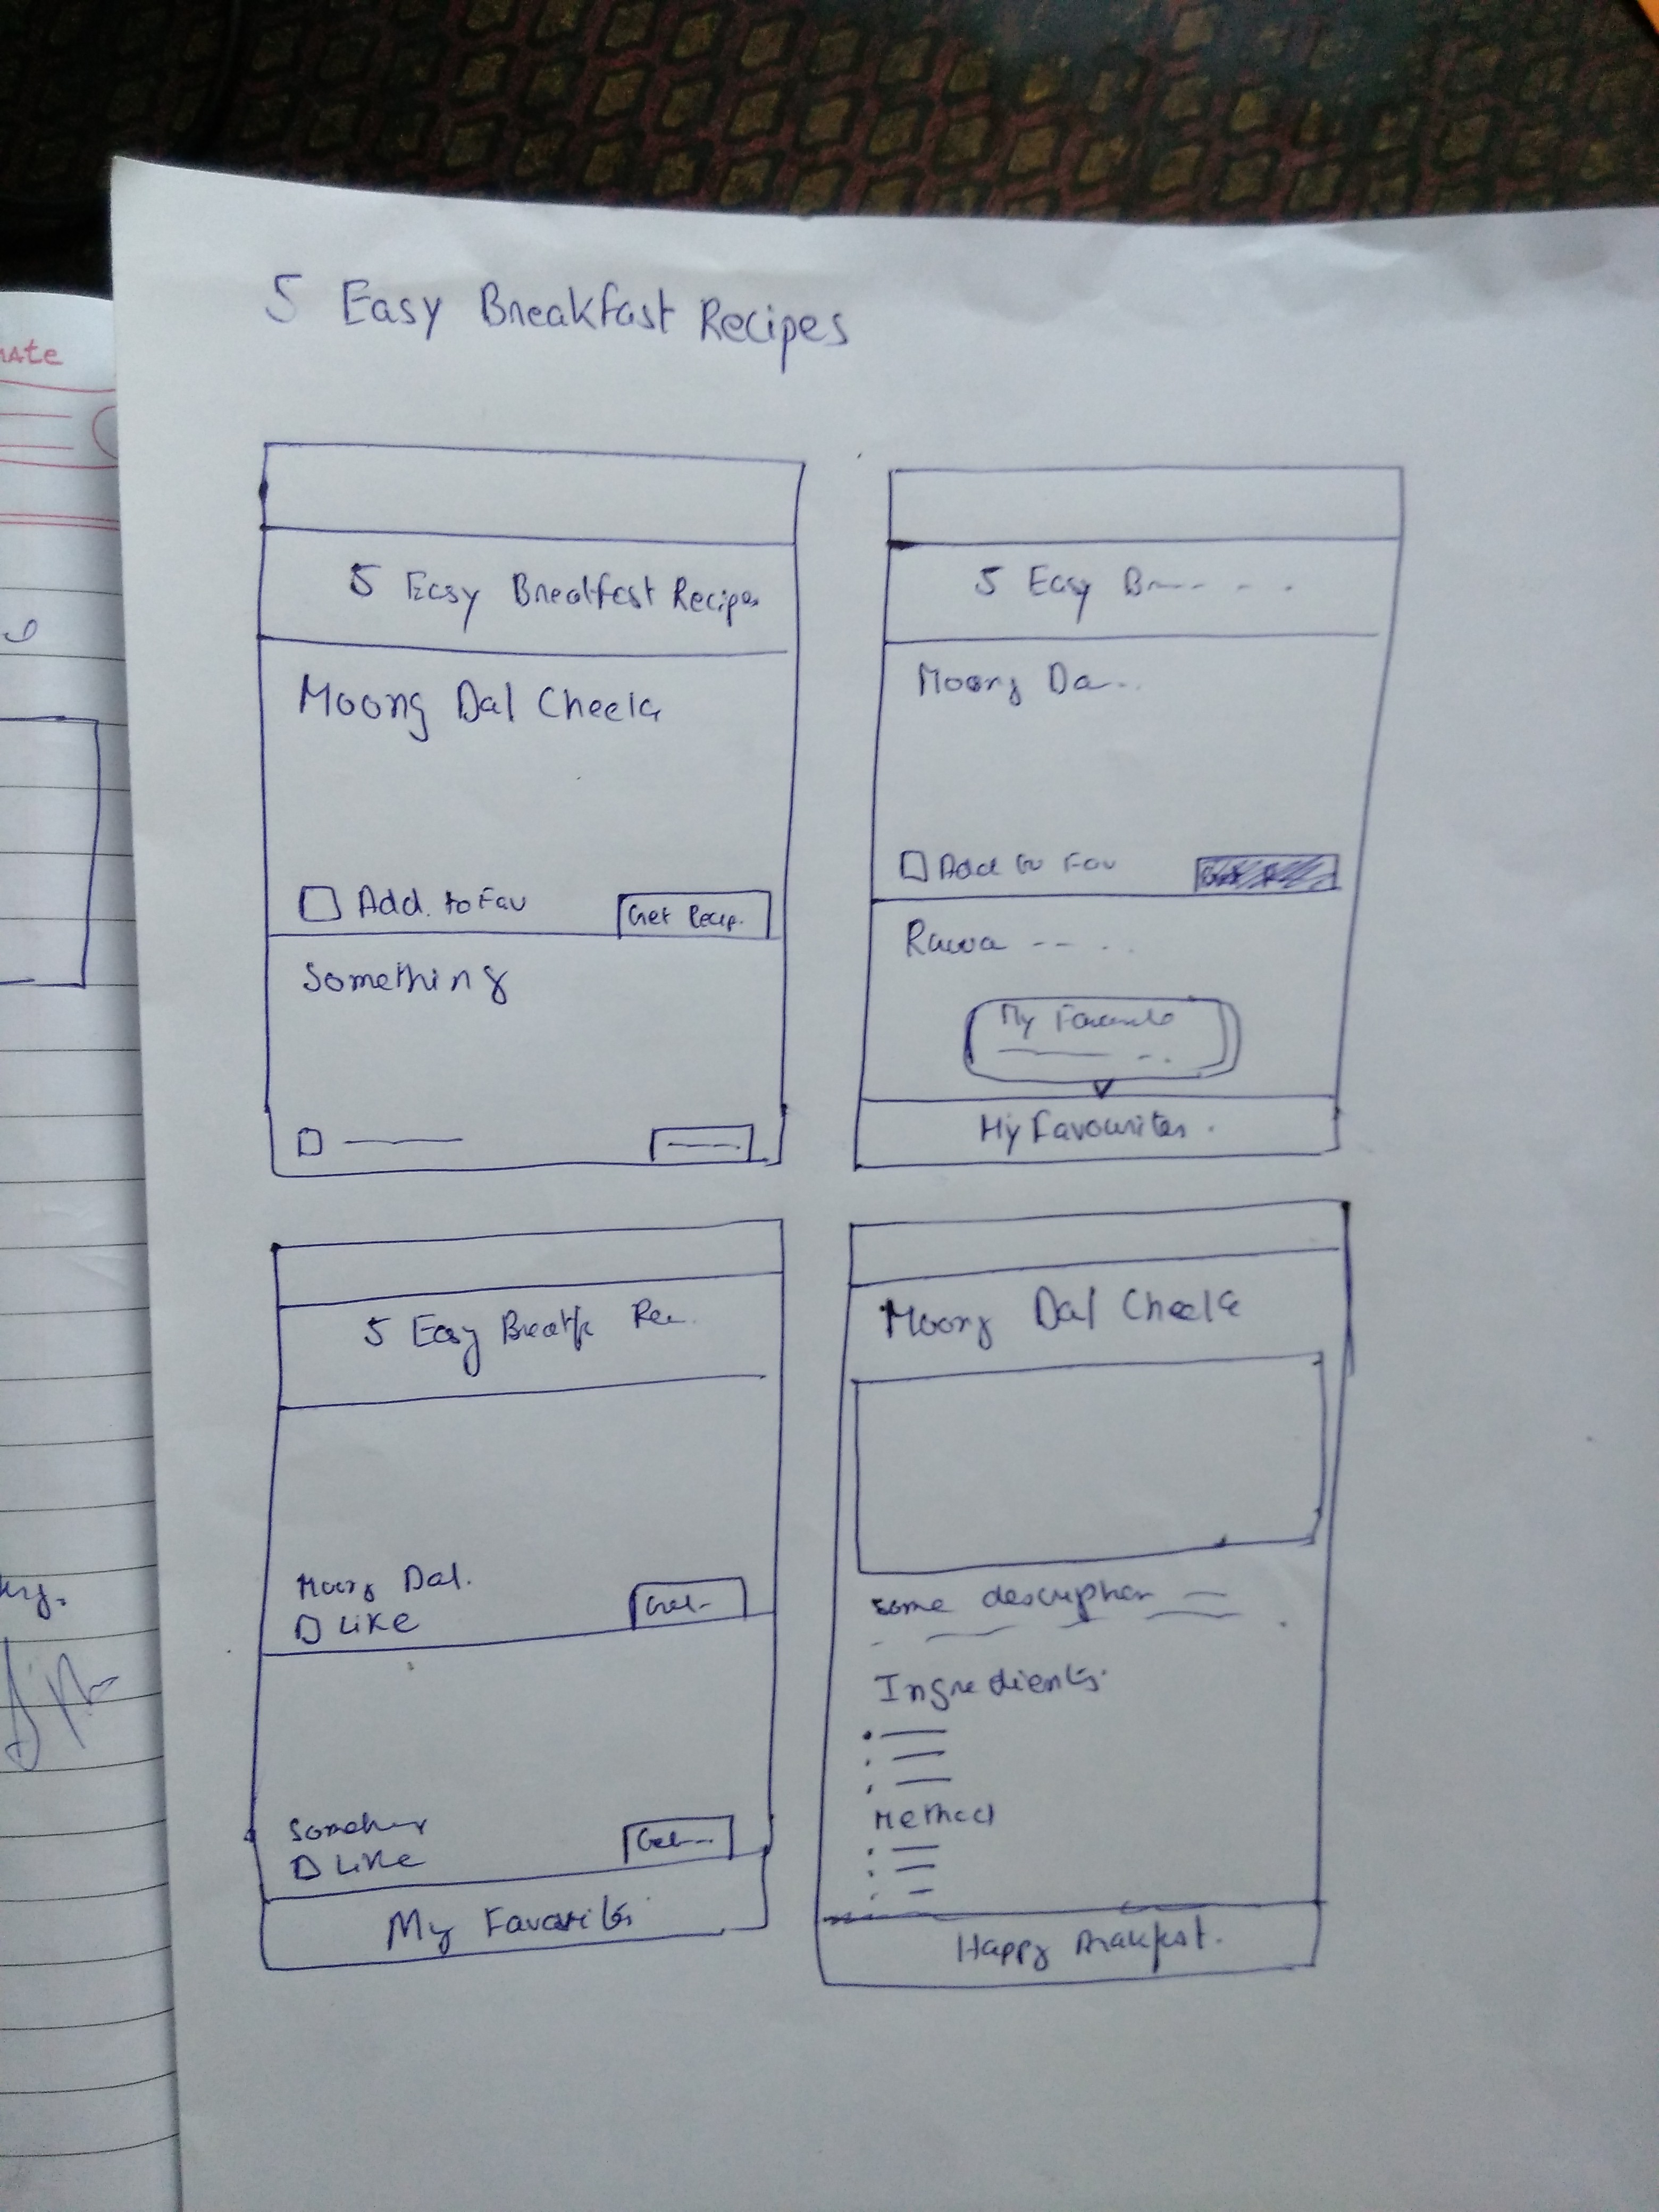 5 Easy Breakfast Recipes
5 Easy Breakfast Recipes
Moong Dal Cheela
Add. to Fav
Get Recip.
Something
5 Easy Br-- - - -
Moong Da--..
Add to Fav
Rawa -- - ..
My Favourite
My Favourites.
5 Easy Breakf Rec..
Moong Dal.
Like
Get--
Like
Get---
My Favorites
Moong Dal Cheela
some description
Ingredients.
Method
Happy Breakfast.
nate